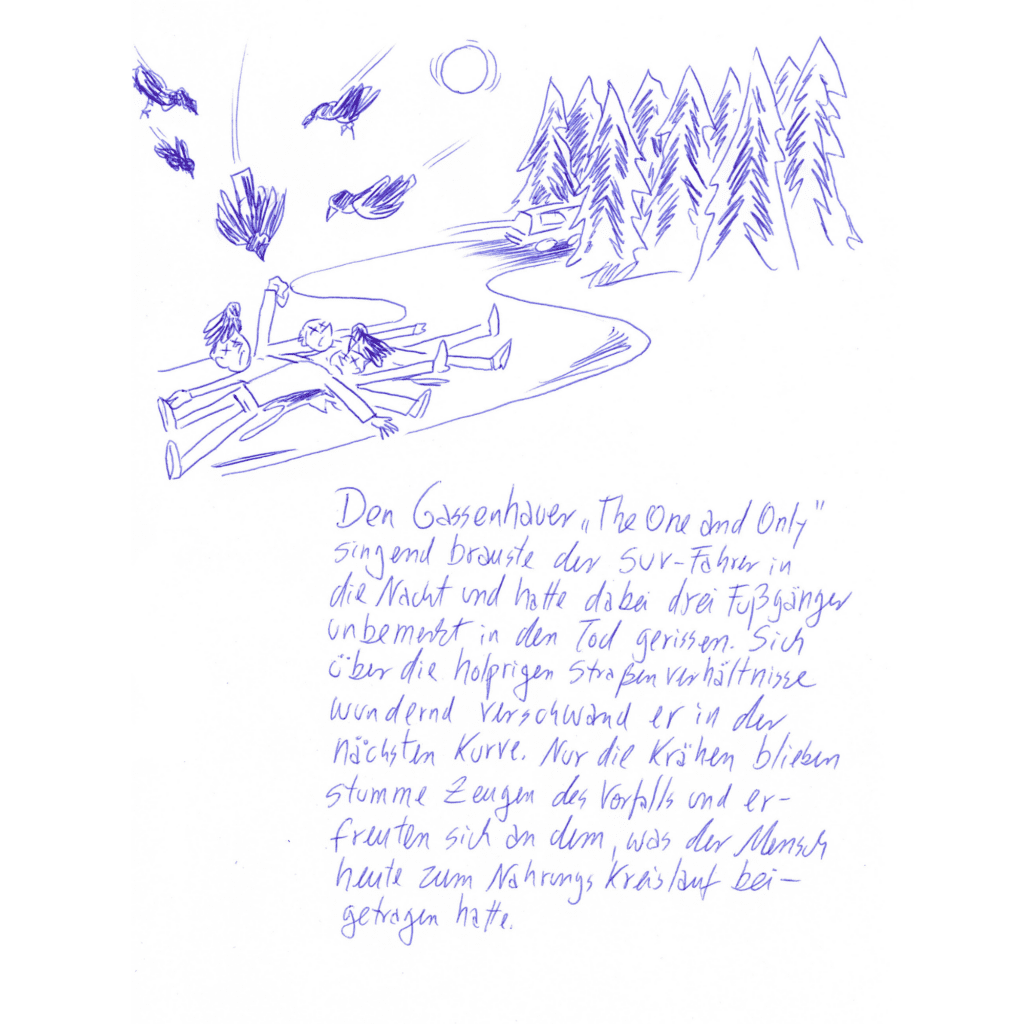 Den Gassenhauer „The One and Only"
singend brauste der SUV-Fahrer in
die Nacht und hatte dabei drei Fußgänger
unbemerkt in den Tod gerissen. Sich
über die holprigen Straßenverhältnisse
wundernd verschwand er in der
nächsten Kurve. Nur die Krähen blieben
stumme Zeugen des Vorfalls und er-
freuten sich an dem, was der Mensch
heute zum Nahrungskreislauf bei-
getragen hatte.